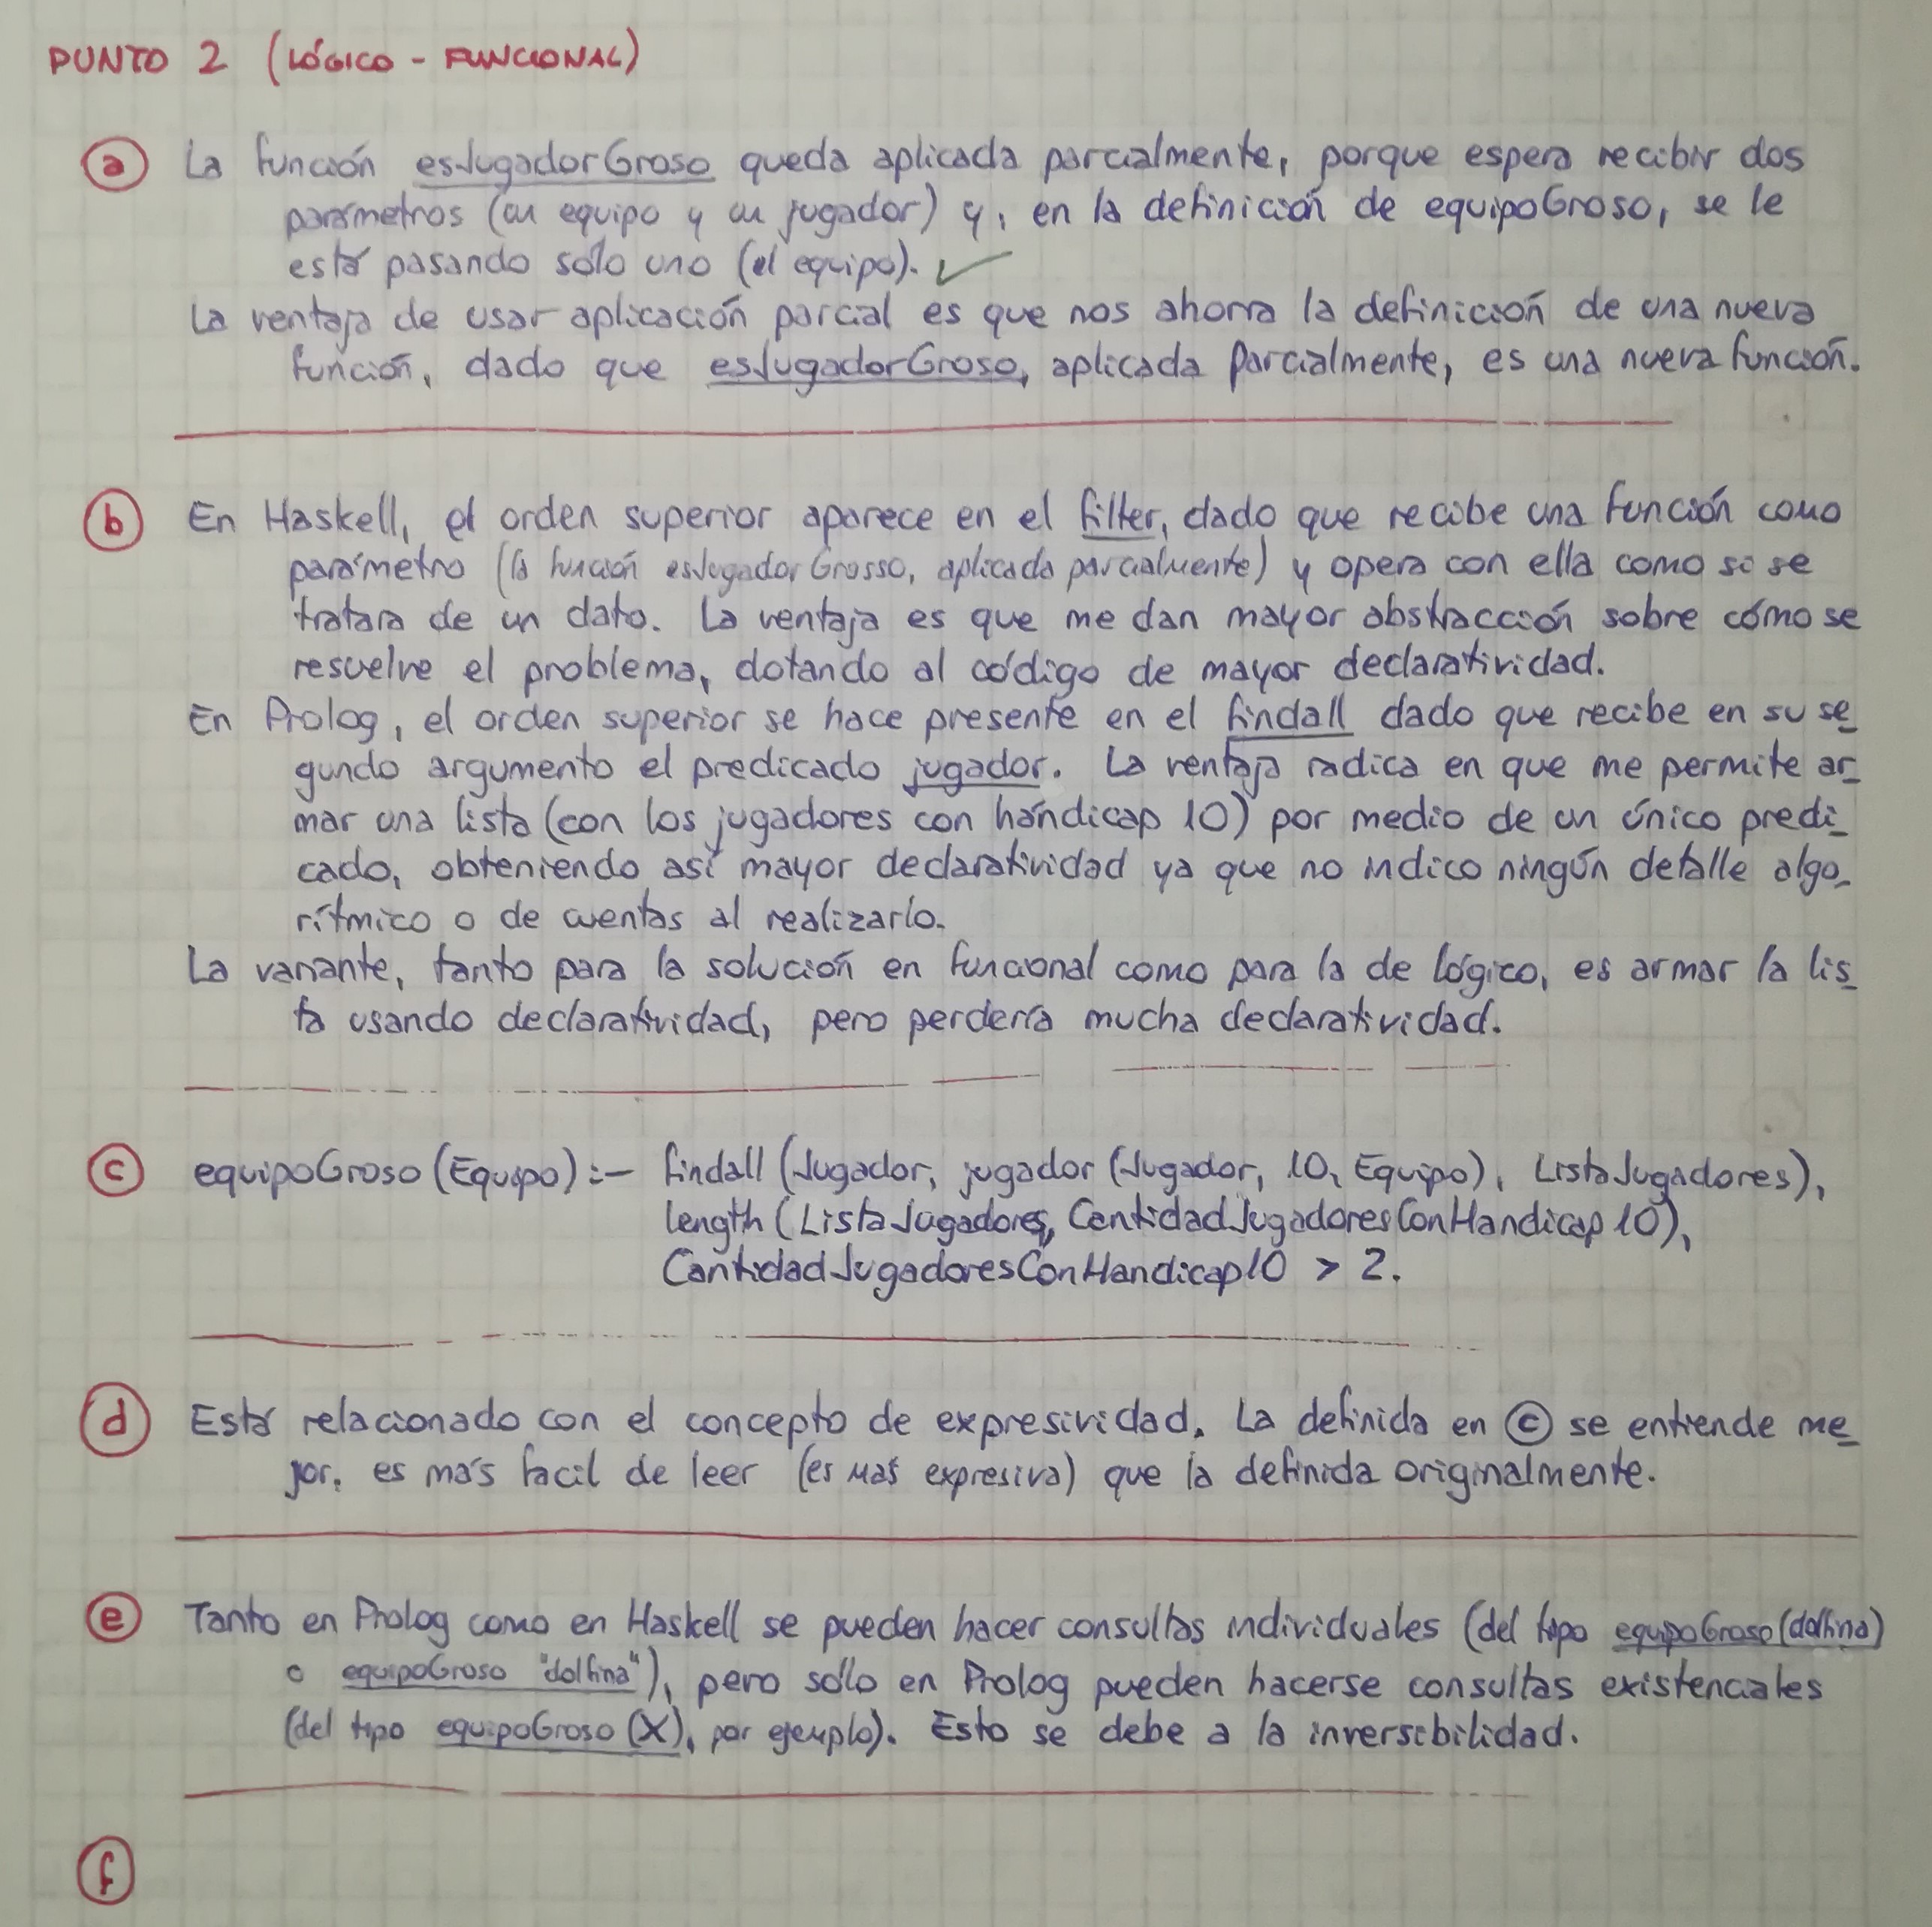 PUNTO 2 (LÓGICO - FUNCIONAL)
a La función esJugadorGroso queda aplicada parcialmente, porque espera recibir dos
parámetros (un equipo y un jugador) y, en la definición de equipoGroso, se le
está pasando sólo uno (el equipo). ✓
La ventaja de usar aplicación parcial es que nos ahorra la definición de una nueva
función, dado que esJugadorGroso, aplicada Parcialmente, es una nueva función.
b En Haskell, el orden superior aparece en el filter, dado que recibe una función como
parámetro (la función esJugadorGrosso, aplicada parcialmente) y opera con ella como si se
tratara de un dato. La ventaja es que me dan mayor abstracción sobre cómo se
resuelve el problema, dotando al código de mayor declaratividad.
En Prolog, el orden superior se hace presente en el findall dado que recibe en su se_
gundo argumento el predicado jugador. La ventaja radica en que me permite ar_
mar una lista (con los jugadores con hándicap 10) por medio de un único predi_
cado, obteniendo así mayor declaratividad ya que no indico ningún detalle algo_
rítmico o de cuentas al realizarlo.
La variante, tanto para la solución en funcional como para la de lógico, es armar la lis_
ta usando declaratividad, pero perdería mucha declaratividad.
c equipoGroso (Equipo) :- findall (Jugador, jugador (Jugador, 10, Equipo), ListaJugadores),
length (ListaJugadores, CantidadJugadoresConHandicap10),
CantidadJugadoresConHandicap10 > 2.
d Está relacionado con el concepto de expresividad. La definida en c se entiende me_
jor, es más facil de leer (es más expresiva) que la definida originalmente.
e Tanto en Prolog como en Haskell se pueden hacer consultas individuales (del tipo equipoGroso(dolfina)
o equipoGroso "dolfina"), pero sólo en Prolog pueden hacerse consultas existenciales
(del tipo equipoGroso (X), por ejemplo). Esto se debe a la inversibilidad.
f